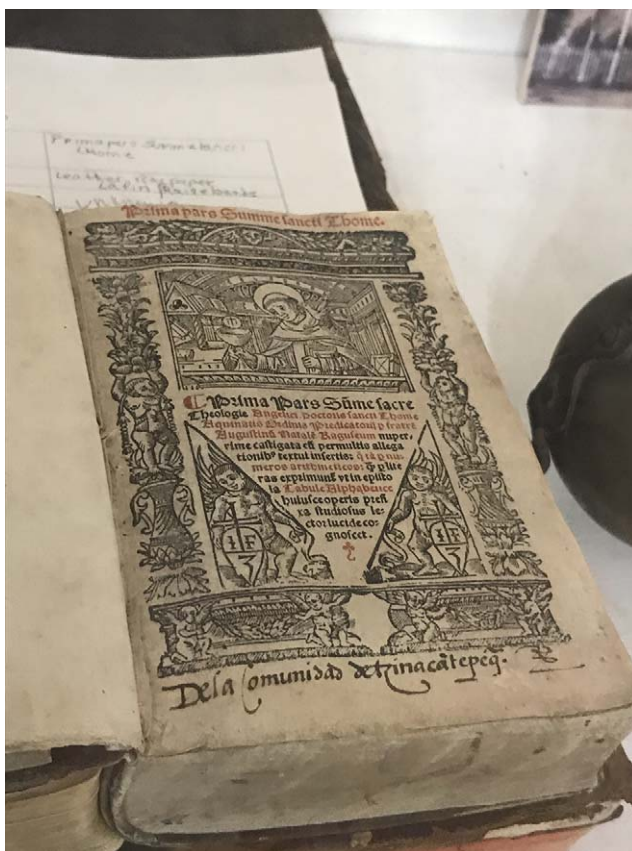 Prima pars Sume
thome
Leather, Rag paper
Latin
Prima pars Summe sancti Thome.
Prima Pars Sūme sacre
Theologie Angelici Doctoris sancti Thome
Aquinatis Ordinis Predicatorū p fratrē
Augustinū Natalē Raguseum nuper-
rime castigata est permultis allega
tionibꝰ textui insertis: q̄ tā p nu
meros arithmeticos: q̄ꝫ p lite
ras exprimunt vt in episto
la Tabule Alphabetice
huiusce operis prefi
xa studiosus le-
ctor lucide co-
gnoscet.
I F
I F
De la Comunidad de tzinacātepeq̄.